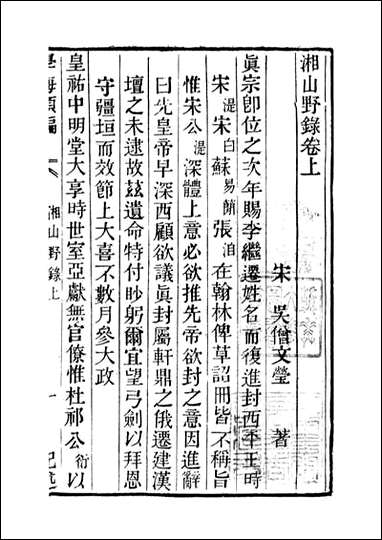 湘山野錄卷上
宋 吳僧文瑩 著
眞宗卽位之次年賜李繼遷姓名而復進封西平王時
宋湜宋白蘇易簡張洎在翰林俾草詔冊皆不稱旨
惟宋公湜深體上意必欲推先帝欲封之意因進辭
曰先皇帝早深西顧欲議眞封屬軒鼎之俄遷建漢
壇之未逮故茲遺命特付眇躬爾宜望弓劍以拜恩
守疆垣而效節上大喜不數月參大政
皇祐中明堂大享時世室亞獻無官僚惟杜祁公衍以
學海類編
湘山野錄上
一